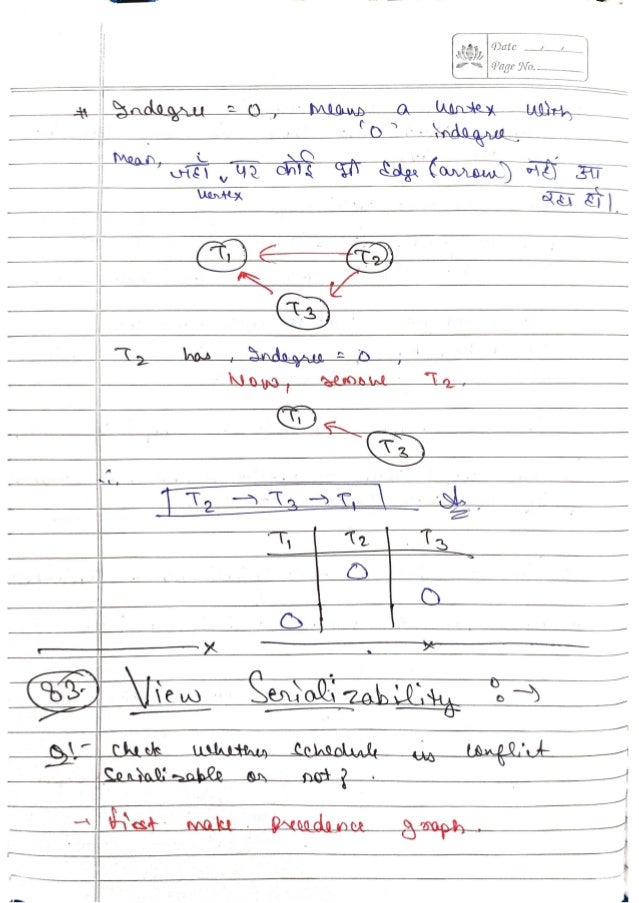 Date
Page No.
# Indegree = 0, means a vertex with
'0' indegree.
Mean, जहाँ vertex पर कोई भी Edge (arrow) नहीं आ
रहा हो।
T1 T2
T3
T2 has, Indegree = 0,
Now, remove T2.
T1
T3
∴
T2 → T3 → T1
T1 T2 T3
O
O
O
x x
83. View Serializability :→
Q!- Check whether Schedule is conflict
Serializable or not?
→ first make Precedence graph.